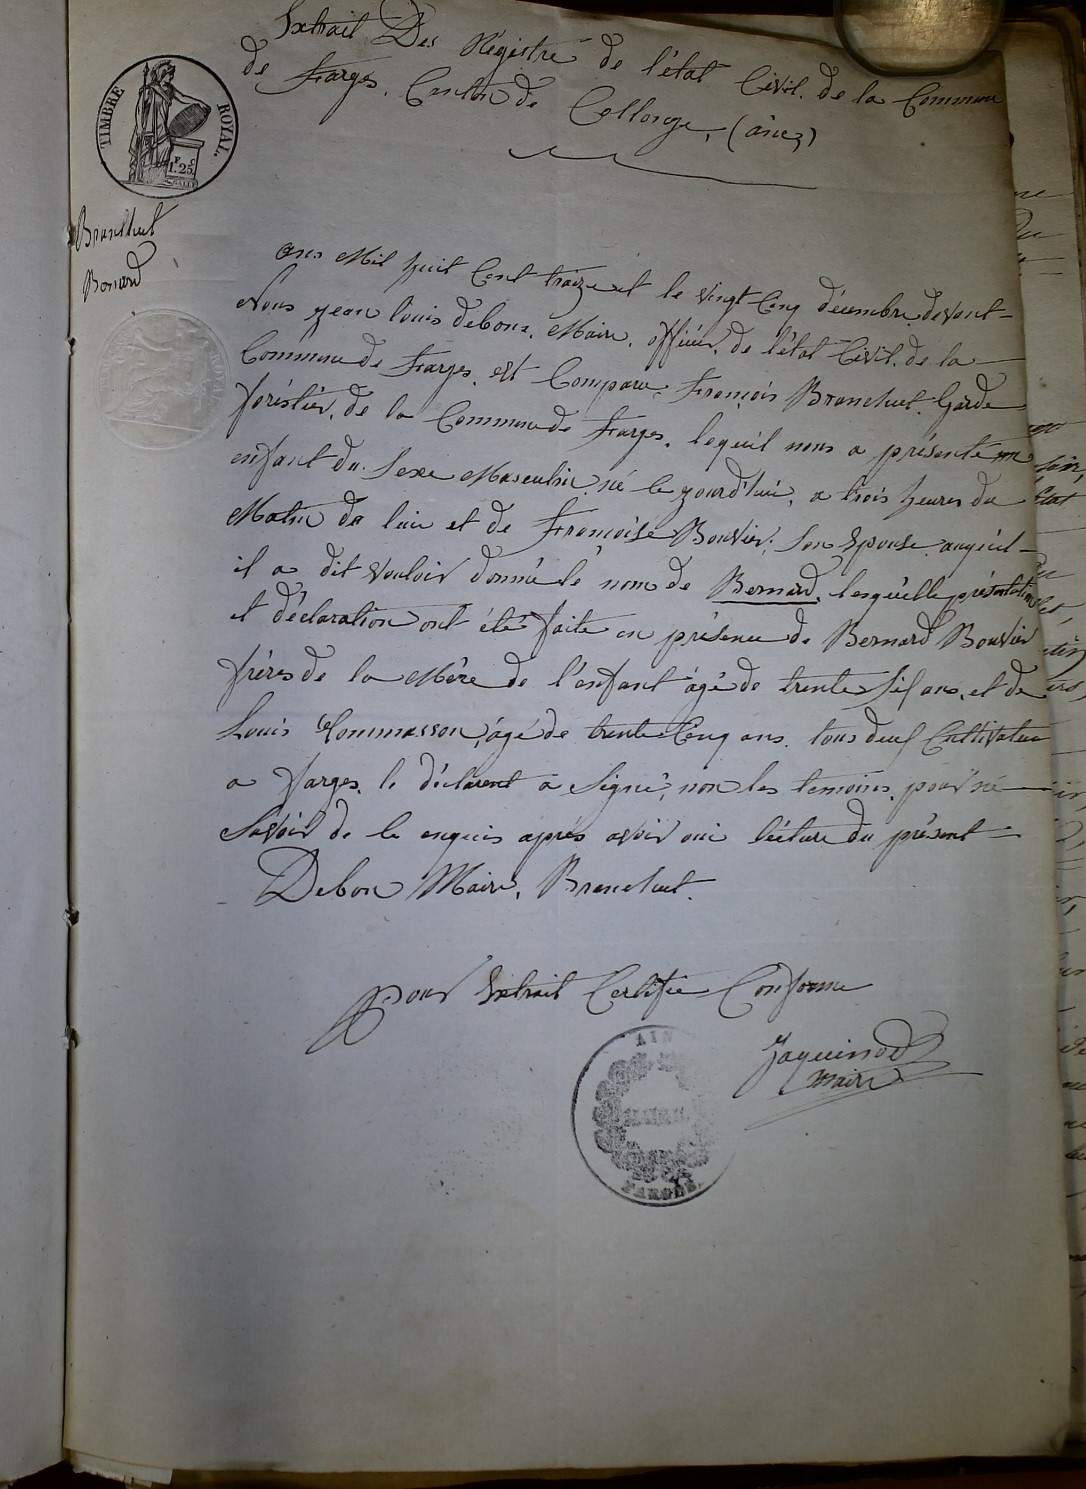 Extrait Des Régistre de l'état Civil. de la Commune
de Farges. Canton de Collonge, (ain)
TIMBRE ROYAL.
1 F 25 C
Branchut
Bonard
ans Mil huit Cent traize et le vingt Cinq décembre. devant
Nous jean louis debons. Maire. officier. de l'état Civil. de la
Commune de Farges. est Comparu. François Branchut. Garde
foréstier, de la Commune de Farges. lequil nous a présenté un
enfant du Sexe Masculin né le jourd'hui, a trois heures du
Matin de lui et de Françoise Bouvier; Son Epouse auquil
il a dit vouloir donné lé nom de Bernard, lesquélle présentation
et déclaration ont été faite en présence de Bernard Bouvier
fréres de la Mére de l'enfant âgé de trente Six ans. et de
Louis Commasson, âgé de trente Cinq ans. tous deux Cultivateur
a farges. le déclarent a Signé, non les temoins. pour né
Savoir de le enquis aprés avoir oui lécture du présent
Debon Maire. Branchut.
pour Extrait Certifié Conforme
Jaquinod
Maire
AIN
MAIRIE
FARGES